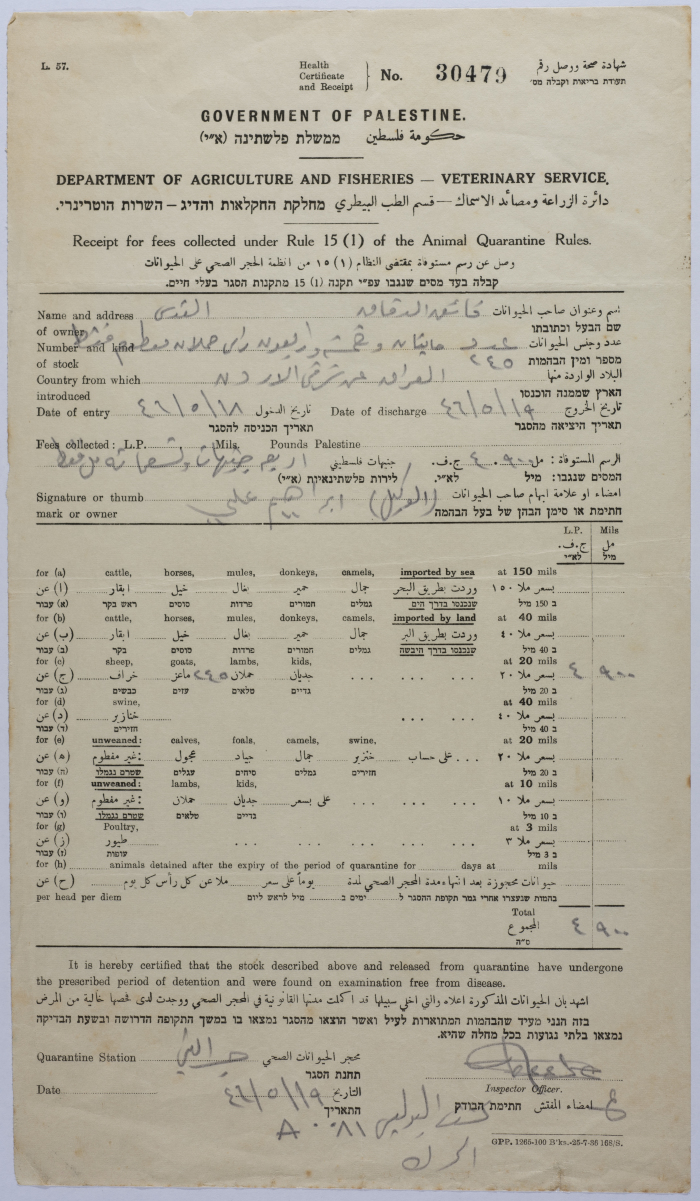 L. 57.
Health
Certificate
and Receipt
No. 30479
شهادة صحة ووصل رقم
תעודת בריאות וקבלה מס׳
GOVERNMENT OF PALESTINE.
حكومة فلسطين ממשלת פלשתינה (א״י)
DEPARTMENT OF AGRICULTURE AND FISHERIES — VETERINARY SERVICE.
دائرة الزراعة ومصائد الاسماك — قسم الطب البيطري מחלקת החקלאות והדיג – השרות הוטרינרי.
Receipt for fees collected under Rule 15 (1) of the Animal Quarantine Rules.
وصل عن رسم مستوفاة بمقتضى النظام (١) ١٥ من انظمة الحجر الصحي على الحيوانات
קבלה בעד מסים שנגבו עפ״י תקנה (1) 15 מתקנות הסגר בעלי חיים.
Name and address القدس اسم وعنوان صاحب الحيوانات
of owner שם הבעל וכתובתו
Number and kind عدد مايتان وخمسة واربعون راس حملان عدد وجنس الحيوانات
of stock ٢٤٥ מספר ומין הבהמות
Country from which العراق عن شرقي الاردن البلاد الواردة منها
introduced הארץ שממנה הוכנסו
Date of entry ٤٦/٥/١٨ تاريخ الدخول Date of discharge ٤٦/٥/١٩ تاريخ الخروج
תאריך הכניסה להסגר תאריך היציאה מהסגר
Fees collected: L.P. Mils. Pounds Palestine
اربعة جنيهات وتسعماية مل فقط جنيهات فلسطيني ج.ف. ٤ مل ٩٠٠ الرسم المستوفاة :
לירות פלשתינאיות (א״י) לא״י. מיל המסים שנגבו:
Signature or thumb (الوكيل) ابراهيم علي امضاء او علامة ابهام صاحب الحيوانات
mark or owner חתימת או סימן הבהן של בעל הבהמה
L.P. Mils
ج.ف. مل
לא״י מיל
for (a) cattle, horses, mules, donkeys, camels, imported by sea at 150 mils
عن (ا) ابقار خيل بغال حمير جمال وردت بطريق البحر بسعر ملا ١٥٠
עבור (א) ראש בקר סוסים פרדות חמורים גמלים שנכנסו בדרך הים ב 150 מיל
for (b) cattle, horses, mules, donkeys, camels, imported by land at 40 mils
عن (ب) ابقار خيل بغال حمير جمال وردت بطريق البر بسعر ملا ٤٠
עבור (ב) בקר סוסים פרדות חמורים גמלים שנכנסו בדרך היבשה ב 40 מיל
for (c) sheep, goats, lambs, kids, at 20 mils
عن (ج) خراف ماعز ٢٤٥ حملان جديان . . . . . . بسعر ملا ٢٠ ٤ ٩٠٠
עבור (ג) כבשים עזים טלאים גדיים ב 20 מיל
for (d) swine, at 40 mils
عن (د) خنازير . . . بسعر ملا ٤٠
עבור (ד) חזירים ב 40 מיל
for (e) unweaned: calves, foals, camels, swine, at 20 mils
عن (ه) غير مفطوم: عجول جياد جمال خنزير على حساب . . . بسعر ملا ٢٠
עבור (ה) שטרם נגמלו עגלים סיחים גמלים חזירים ב 20 מיל
for (f) unweaned: lambs, kids, at 10 mils
عن (و) غير مفطوم: حملان جديان على بسعر . . . . . . بسعر ملا ١٠
עבור (ו) שטרם נגמלו טלאים גדיים ב 10 מיל
for (g) Poultry, at 3 mils
عن (ز) طيور . . . . . . . . . . . . بسعر ملا ٣
עבור (ז) עופות ב 3 מיל
for (h) animals detained after the expiry of the period of quarantine for days at mils
عن (ح) حيوانات محجوزة بعد انتهاء مدة المحجر الصحي لمدة يوماً على سعر ملا عن كل رأس كل يوم
per head per diem בהמות שנעצרו אחרי גמר תקופת ההסגר ל ימים ב מיל לראש ליום
Total
المجموع ٤ ٩٠٠
ס״ה
It is hereby certified that the stock described above and released from quarantine have undergone
the prescribed period of detention and were found on examination free from disease.
اشهد بان الحيوانات المذكورة اعلاه والتي اخلي سبيلها قد اكملت مدتها القانونية في المحجر الصحي ووجدت لدى فحصها خالية من المرض
בזה הנני מעיד שהבהמות המתוארות לעיל ואשר הוצאו מהסגר נמצאו בו במשך התקופה הדרושה ובשעת הבדיקה
נמצאו בלתי נגועות בכל מחלה שהיא.
Quarantine Station محجر الحيوانات الصحي
תחנת הסגר
Inspector Officer.
Date ٤٦/٥/١٩ التاريخ
התאריך
امضاء المفتش חתימת הבודק
A ٠٠٨١
GPP. 1265-100 B'ks.-25-7-36 168/S.